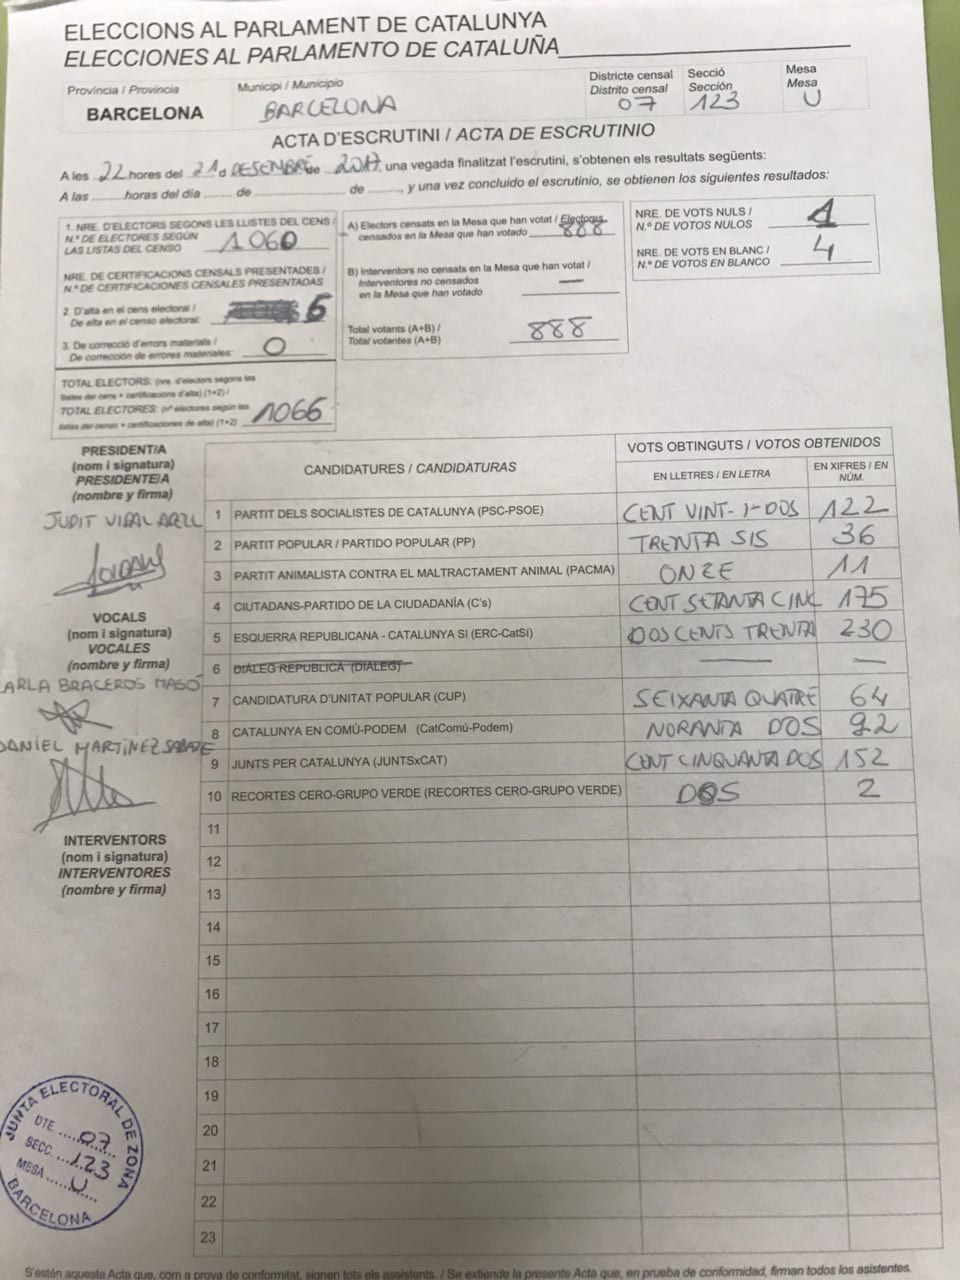 ELECCIONS AL PARLAMENT DE CATALUNYA
ELECCIONES AL PARLAMENTO DE CATALUÑA
Província / Provincia
BARCELONA
Municipi / Municipio
BARCELONA
Districte censal
Distrito censal
07
Secció
Sección
123
Mesa
Mesa
U
ACTA D'ESCRUTINI / ACTA DE ESCRUTINIO
A les 22 hores del 21 d DESEMBRE de 2017, una vegada finalitzat l'escrutini, s'obtenen els resultats següents:
A las ......... horas del día ...... de ........................ de ........., y una vez concluido el escrutinio, se obtienen los siguientes resultados:
1. NRE. D'ELECTORS SEGONS LES LLISTES DEL CENS /
N.º DE ELECTORES SEGÚN
LAS LISTAS DEL CENSO 1060
NRE. DE CERTIFICACIONS CENSALS PRESENTADES /
N.º DE CERTIFICACIONES CENSALES PRESENTADAS
2. D'alta en el cens electoral /
De alta en el censo electoral: 6
3. De correcció d'errors materials /
De corrección de errores materiales: 0
TOTAL ELECTORS: (nre. d'electors segons les
llistes del cens + certificacions d'alta) (1+2) /
TOTAL ELECTORES: (nº electores según las
listas del censo + certificaciones de alta) (1+2) 1066
A) Electors censats en la Mesa que han votat / Electores
censados en la Mesa que han votado 888
B) Interventors no censats en la Mesa que han votat /
Interventores no censados
en la Mesa que han votado —
Total votants (A+B) /
Total votantes (A+B) 888
NRE. DE VOTS NULS /
N.º DE VOTOS NULOS
NRE. DE VOTS EN BLANC /
N.º DE VOTOS EN BLANCO 4
PRESIDENT/A
(nom i signatura)
PRESIDENTE/A
(nombre y firma)
JUDIT VIDAL
VOCALS
(nom i signatura)
VOCALES
(nombre y firma)
ARLA BRACEROS MASÓ
DANIEL MARTINEZ SABATE
INTERVENTORS
(nom i signatura)
INTERVENTORES
(nombre y firma)
CANDIDATURES / CANDIDATURAS
VOTS OBTINGUTS / VOTOS OBTENIDOS
EN LLETRES / EN LETRA
EN XIFRES / EN
NÚM.
1 PARTIT DELS SOCIALISTES DE CATALUNYA (PSC-PSOE) CENT VINT-I-DOS 122
2 PARTIT POPULAR / PARTIDO POPULAR (PP) TRENTA SIS 36
3 PARTIT ANIMALISTA CONTRA EL MALTRACTAMENT ANIMAL (PACMA) ONZE 11
4 CIUTADANS-PARTIDO DE LA CIUDADANÍA (C's) CENT SETANTA CINC 175
5 ESQUERRA REPUBLICANA - CATALUNYA SI (ERC-CatSí) DOS CENTS TRENTA 230
6 DIÀLEG REPUBLICÀ (DIÀLEG) — —
7 CANDIDATURA D'UNITAT POPULAR (CUP) SEIXANTA QUATRE 64
8 CATALUNYA EN COMÚ-PODEM (CatComú-Podem) NORANTA DOS 92
9 JUNTS PER CATALUNYA (JUNTSxCAT) CENT CINQUANTA DOS 152
10 RECORTES CERO-GRUPO VERDE (RECORTES CERO-GRUPO VERDE) DOS 2
11
12
13
14
15
16
17
18
19
20
21
22
23
JUNTA ELECTORAL DE ZONA
DTE. 07
SECC. 123
MESA U
BARCELONA
S'estén aquesta Acta que, com a prova de conformitat, signen tots els assistents. / Se extiende la presente Acta que, en prueba de conformidad, firman todos los asistentes.